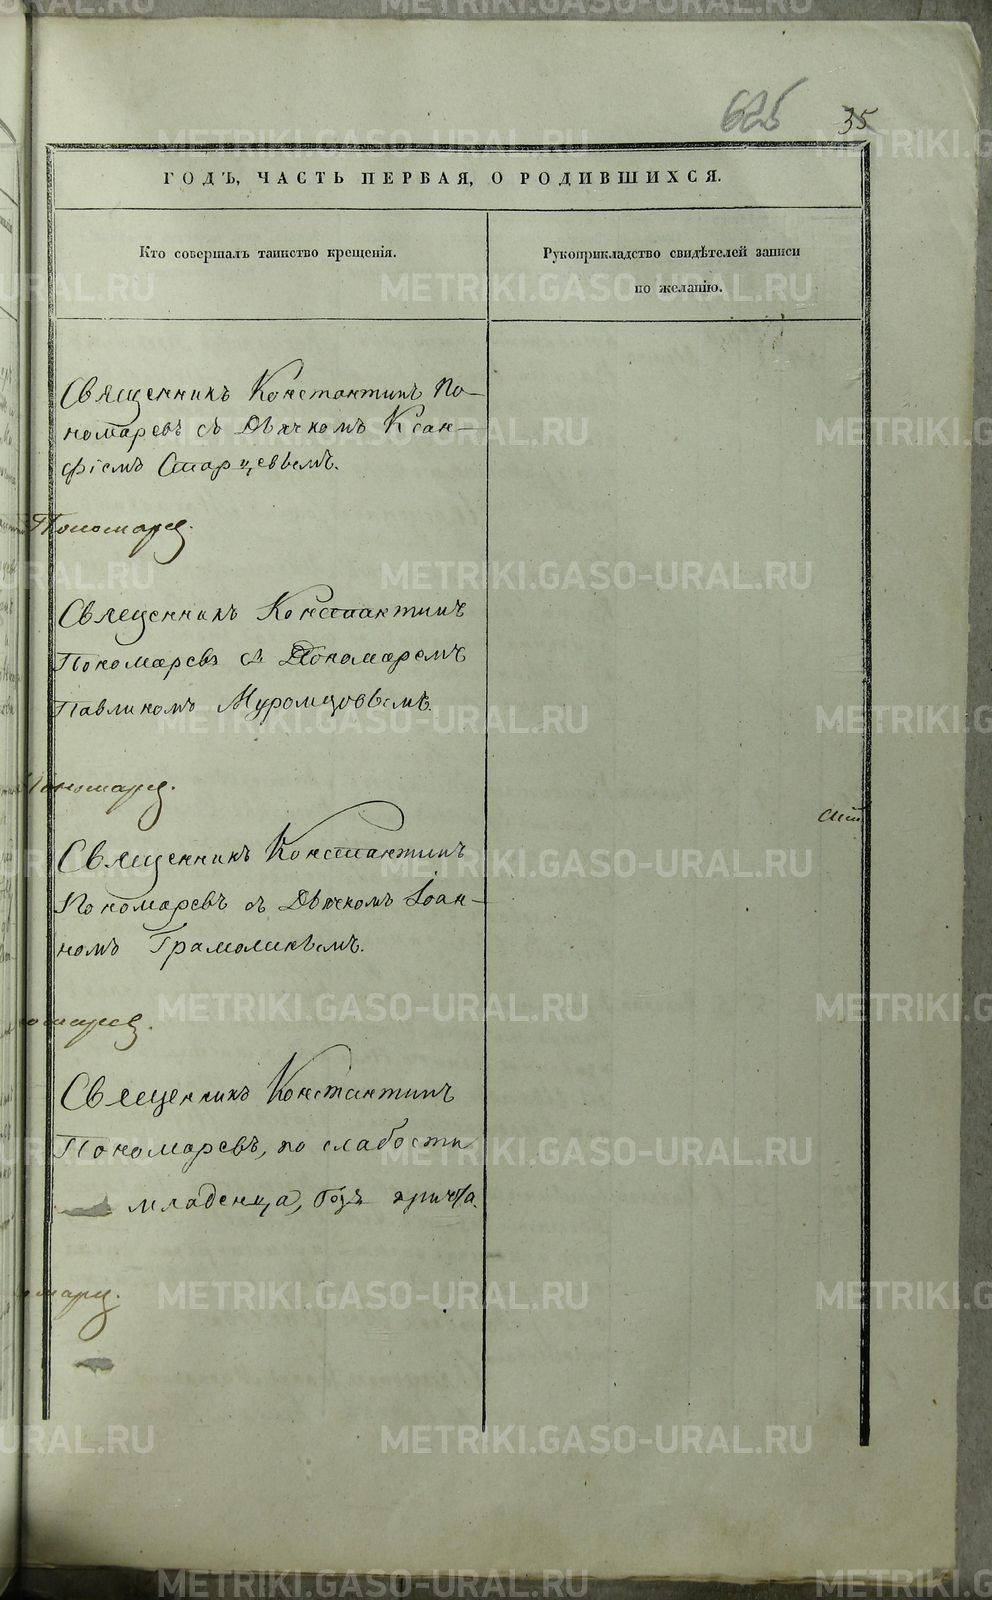 625 35
ГОДЪ, ЧАСТЬ ПЕРВАЯ, О РОДИВШИХСЯ.
Кто совершалъ таинство крещенія.
Рукоприкладство свидѣтелей записи
по желанію.
Священникъ Константинъ По-
номаревъ съ Дьячкомъ Ксан-
фіемъ Старцевымъ.
Пономарев.
Священникъ Константинъ
Пономаревъ съ Пономаремъ
Павлиномъ Муромцовымъ.
Пономарев.
Священникъ Константинъ
Пономаревъ съ Дьячкомъ Іоан-
номъ Грамоликымъ.
омарев.
Священникъ Константинъ
Пономаревъ, по слабости
младенца, безъ причта.
марев.
METRIKI.GASO-URAL.RU